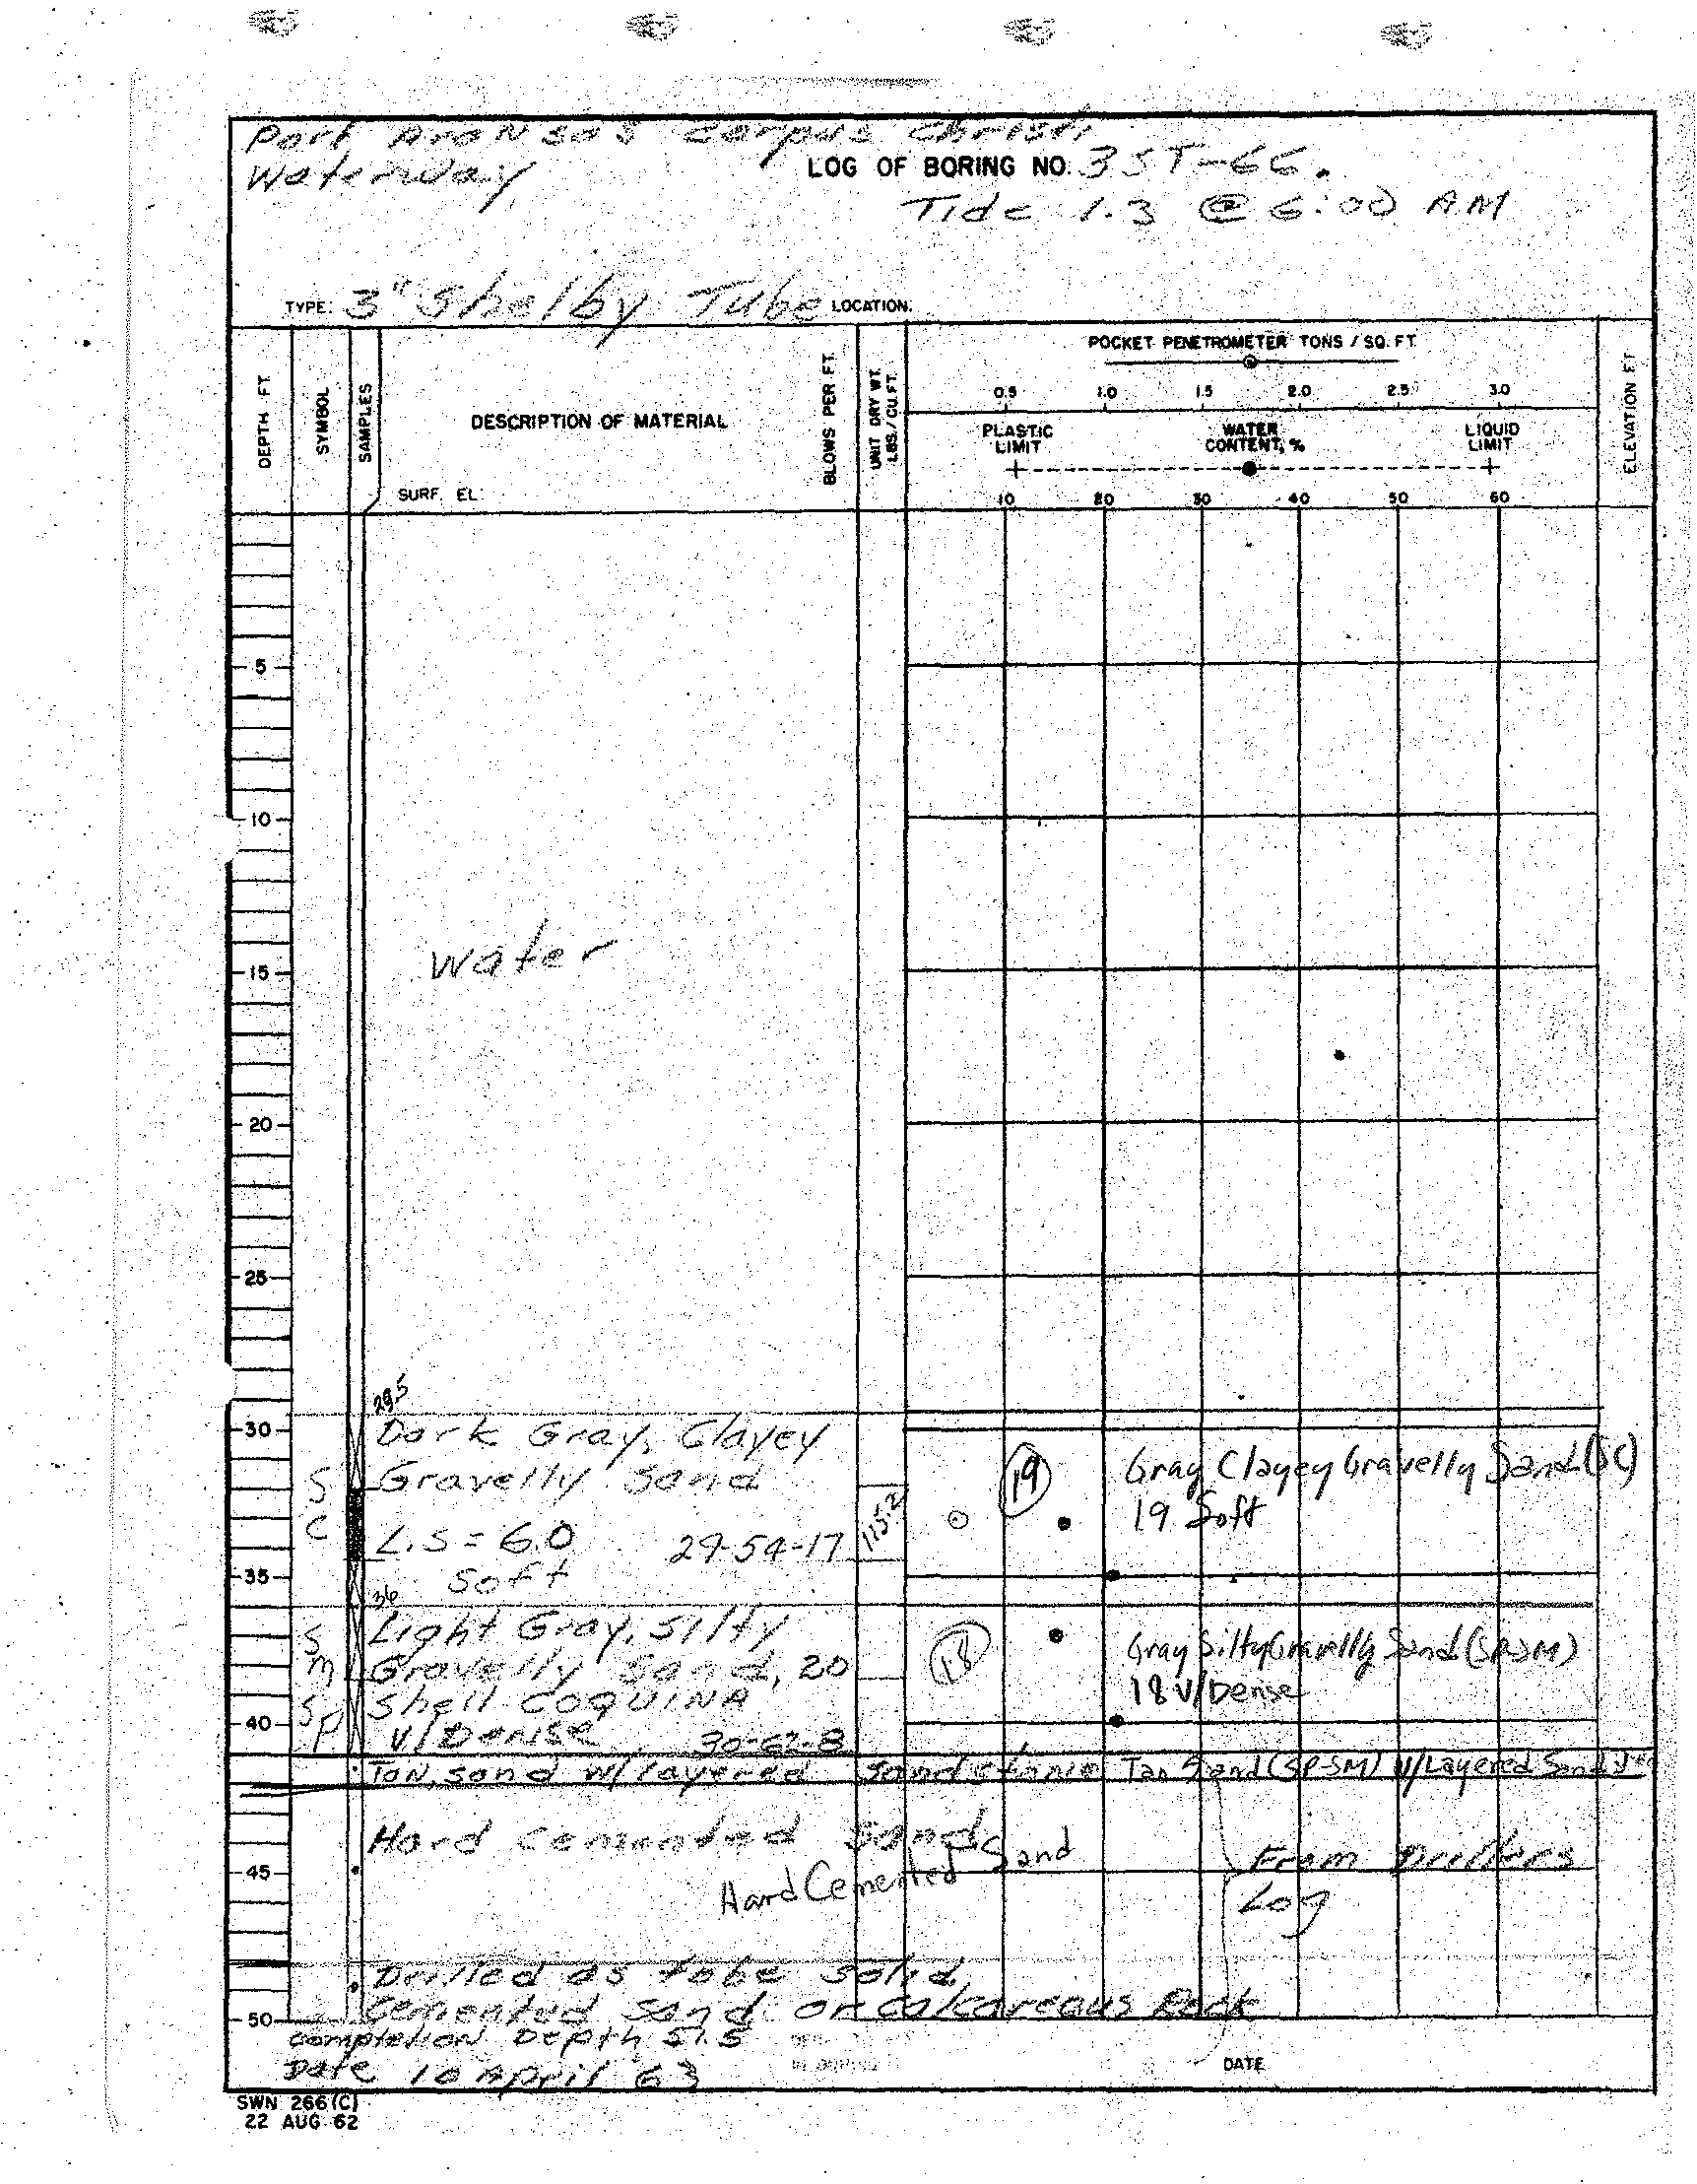 Port Aransas Corpus Christi
Waterway
LOG OF BORING NO. 3ST-66.
Tide 1.3 @ 6:00 AM
TYPE: 3" Shelby Tube LOCATION:
DEPTH FT.
SYMBOL
SAMPLES
DESCRIPTION OF MATERIAL
SURF. EL.
BLOWS PER FT.
UNIT DRY WT. LBS./CU.FT.
POCKET PENETROMETER TONS / SQ. FT.
0.5 1.0 1.5 2.0 2.5 3.0
PLASTIC LIMIT
WATER CONTENT, %
LIQUID LIMIT
10 20 30 40 50 60
ELEVATION FT.
5
10
Water
15
20
25
29.5
30
Dark Gray, Clayey
Gravelly Sand
SC
L.S = 6.0 29-54-17
Soft
115.2
19
Gray Clayey Gravelly Sand (SC)
19 Soft
35
36
Light Gray, Silty
Gravelly Sand, 20
Shell COQUINA
V/Dense 30-62-8
SM
SP
18
Gray Silty Gravelly Sand (SP-SM)
18 V/Dense
40
Tan, sand w/layered Sandstone Tan Sand (SP-SM) w/Layered
Hard Cemented Sand
Hard Cemented Sand
45
From Drillers
Log
Drilled as to be Solid,
Cemented Sand or Calcareous Rock
50
Completion Depth 51.5
Date 10 April 63
DATE
SWN 266(C)
22 AUG 62